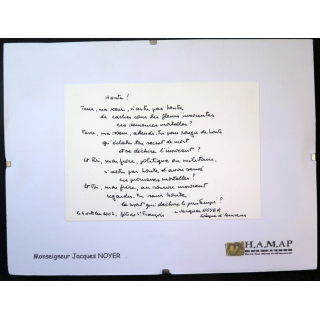 Honte !
Terre, ma sœur, n'as-tu pas honte
de cacher sous tes fleurs innocentes
ces semences mortelles ?
Terre, ma sœur, attends-tu pour rougir de honte
qu'éclate ton secret de mort
et se déchire l'innocent ?
Et toi, mon frère, politique ou militaire,
n'as-tu pas honte d'avoir semé
ces promesses mortelles ?
Et toi, mon frère, au sourire innocent
regardes-tu sans honte
la mort qui déchire le printemps ?
le 4 octobre, fête de St François
+ Jacques NOYER
évêque d'Amiens
Monseigneur Jacques NOYER
H.A.M.A.P